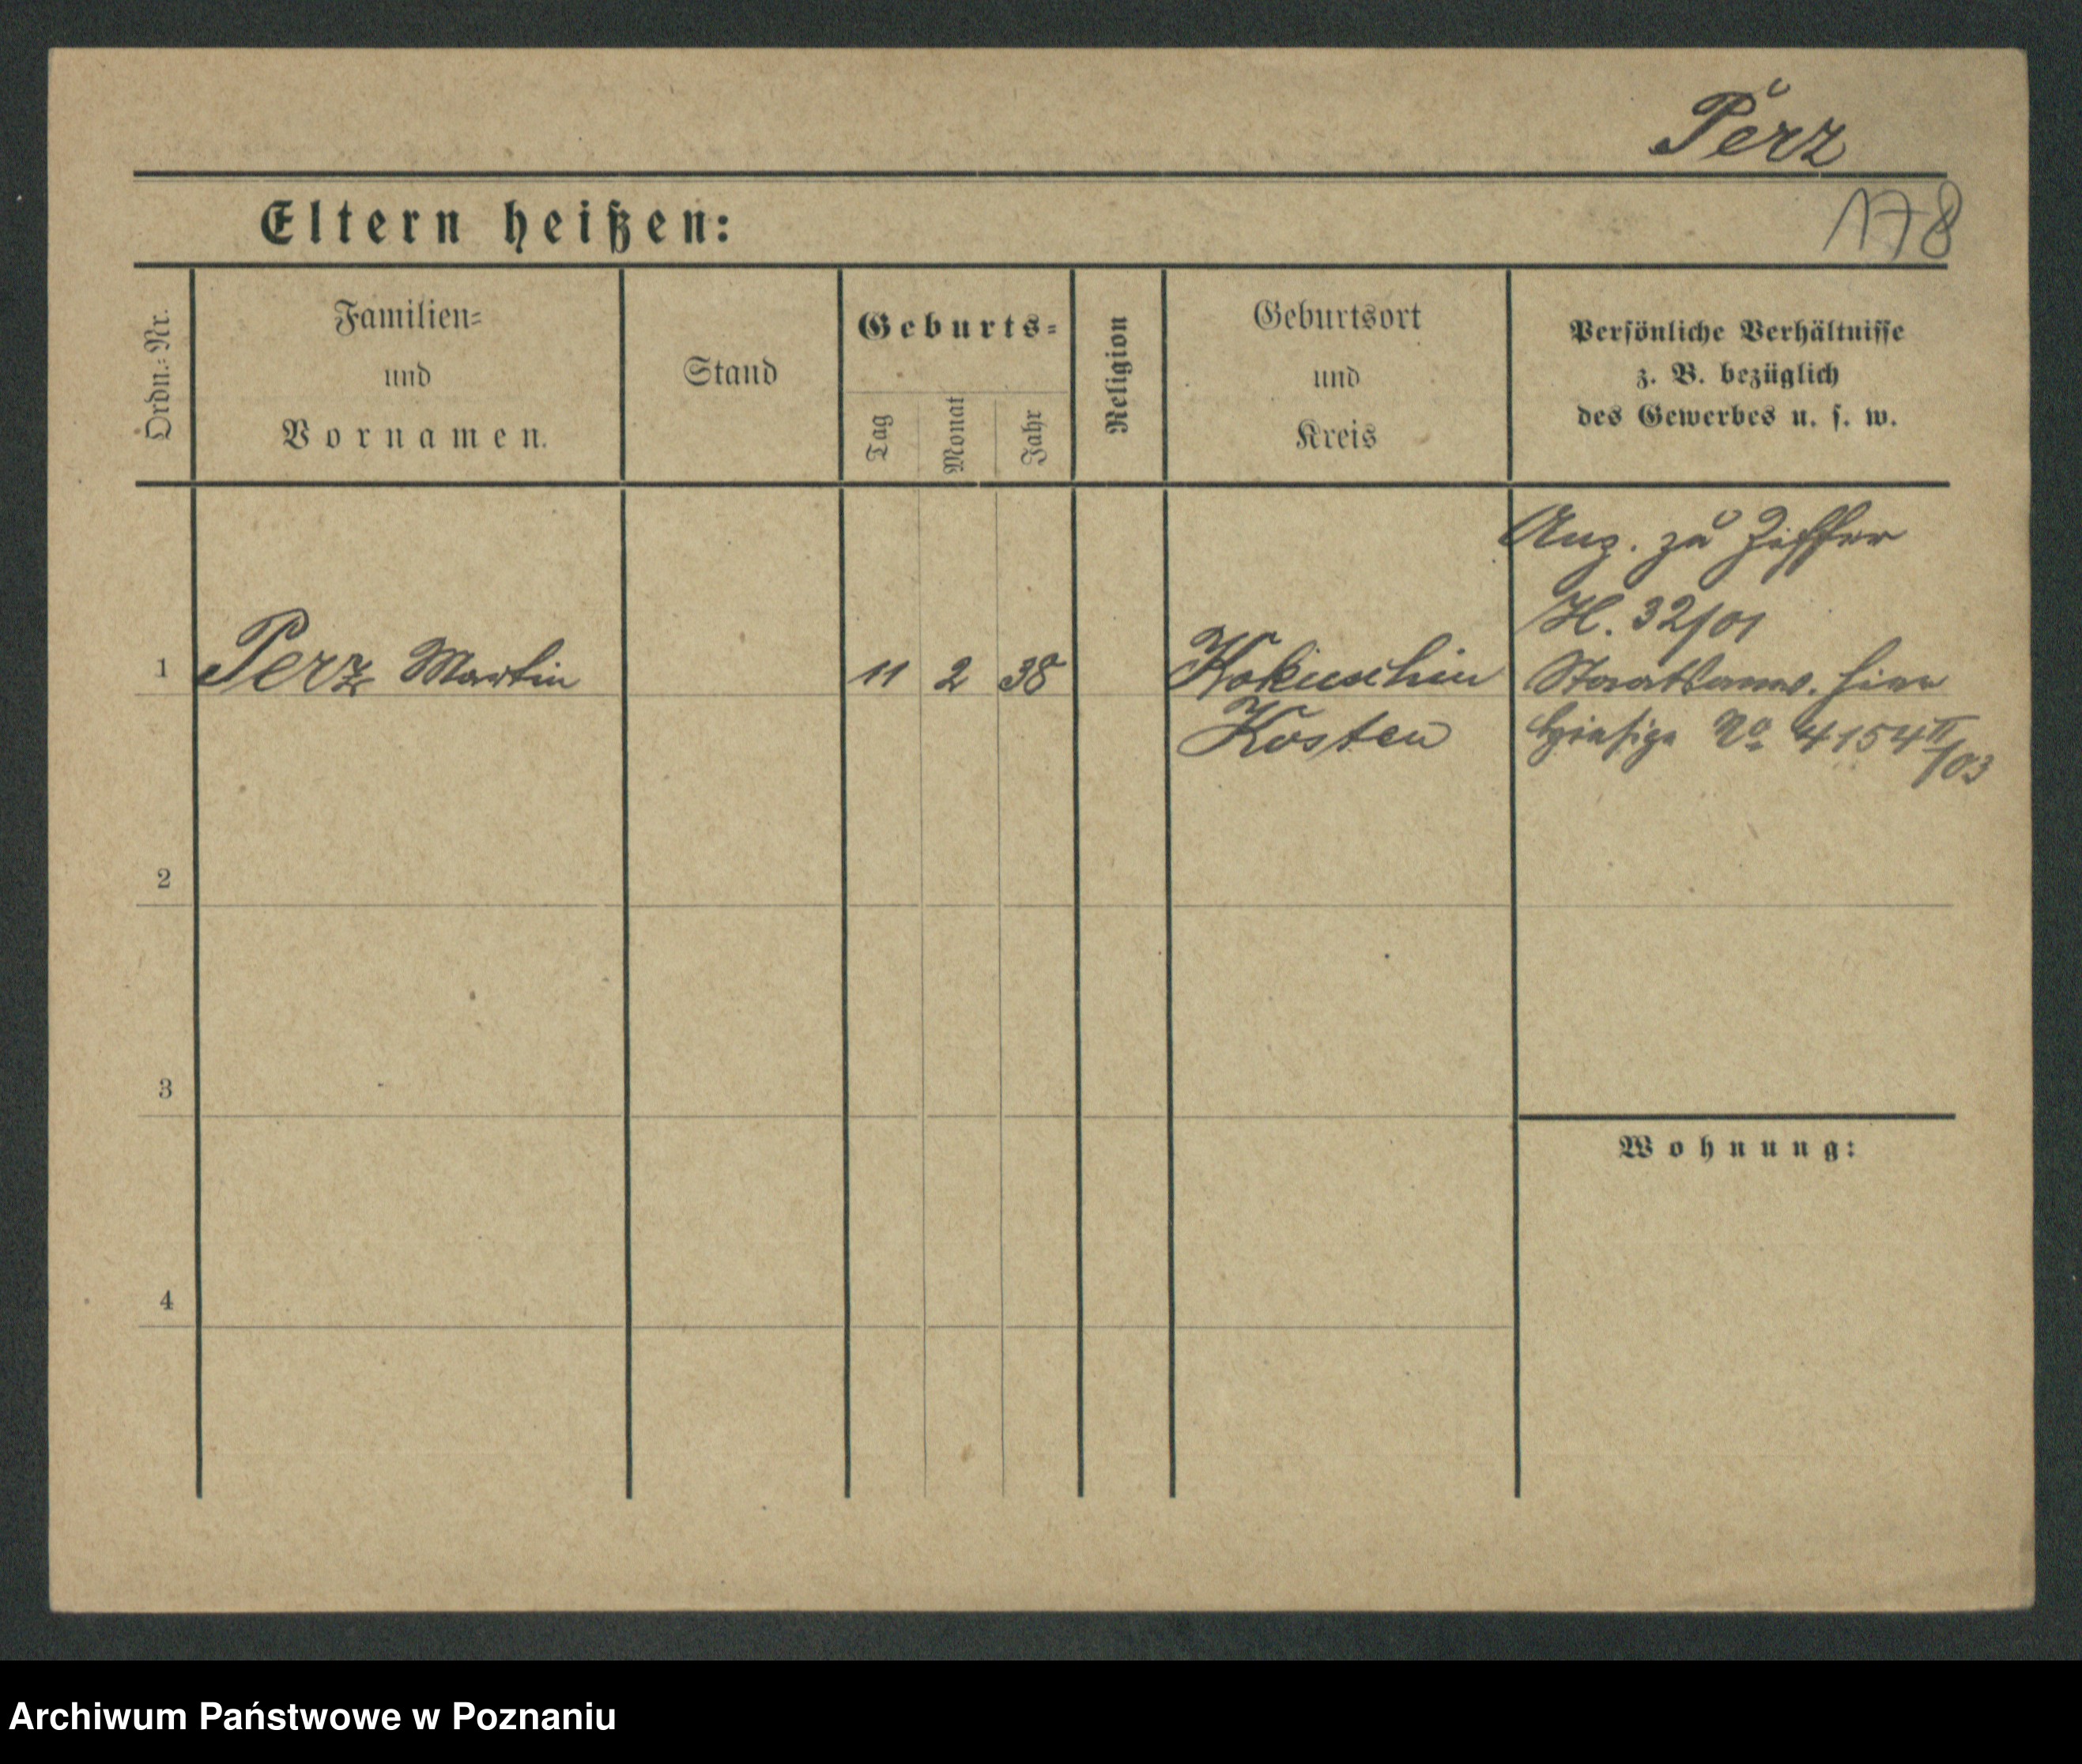 Perz
Eltern heißen:
178
Ordn.-Nr.
Familien-
und
Vornamen.
Stand
Geburts-
Tag
Monat
Jahr
Religion
Geburtsort
und
Kreis
Persönliche Verhältnisse
z. B. bezüglich
des Gewerbes u. s. w.
1
Perz Martin
11 2 38
Kokuschin
Kosten
Ang. zu Ziffer
H. 32/01
Staatsanw. hier
hiesige No 4154 II/03
2
3
4
Wohnung:
Archiwum Państwowe w Poznaniu